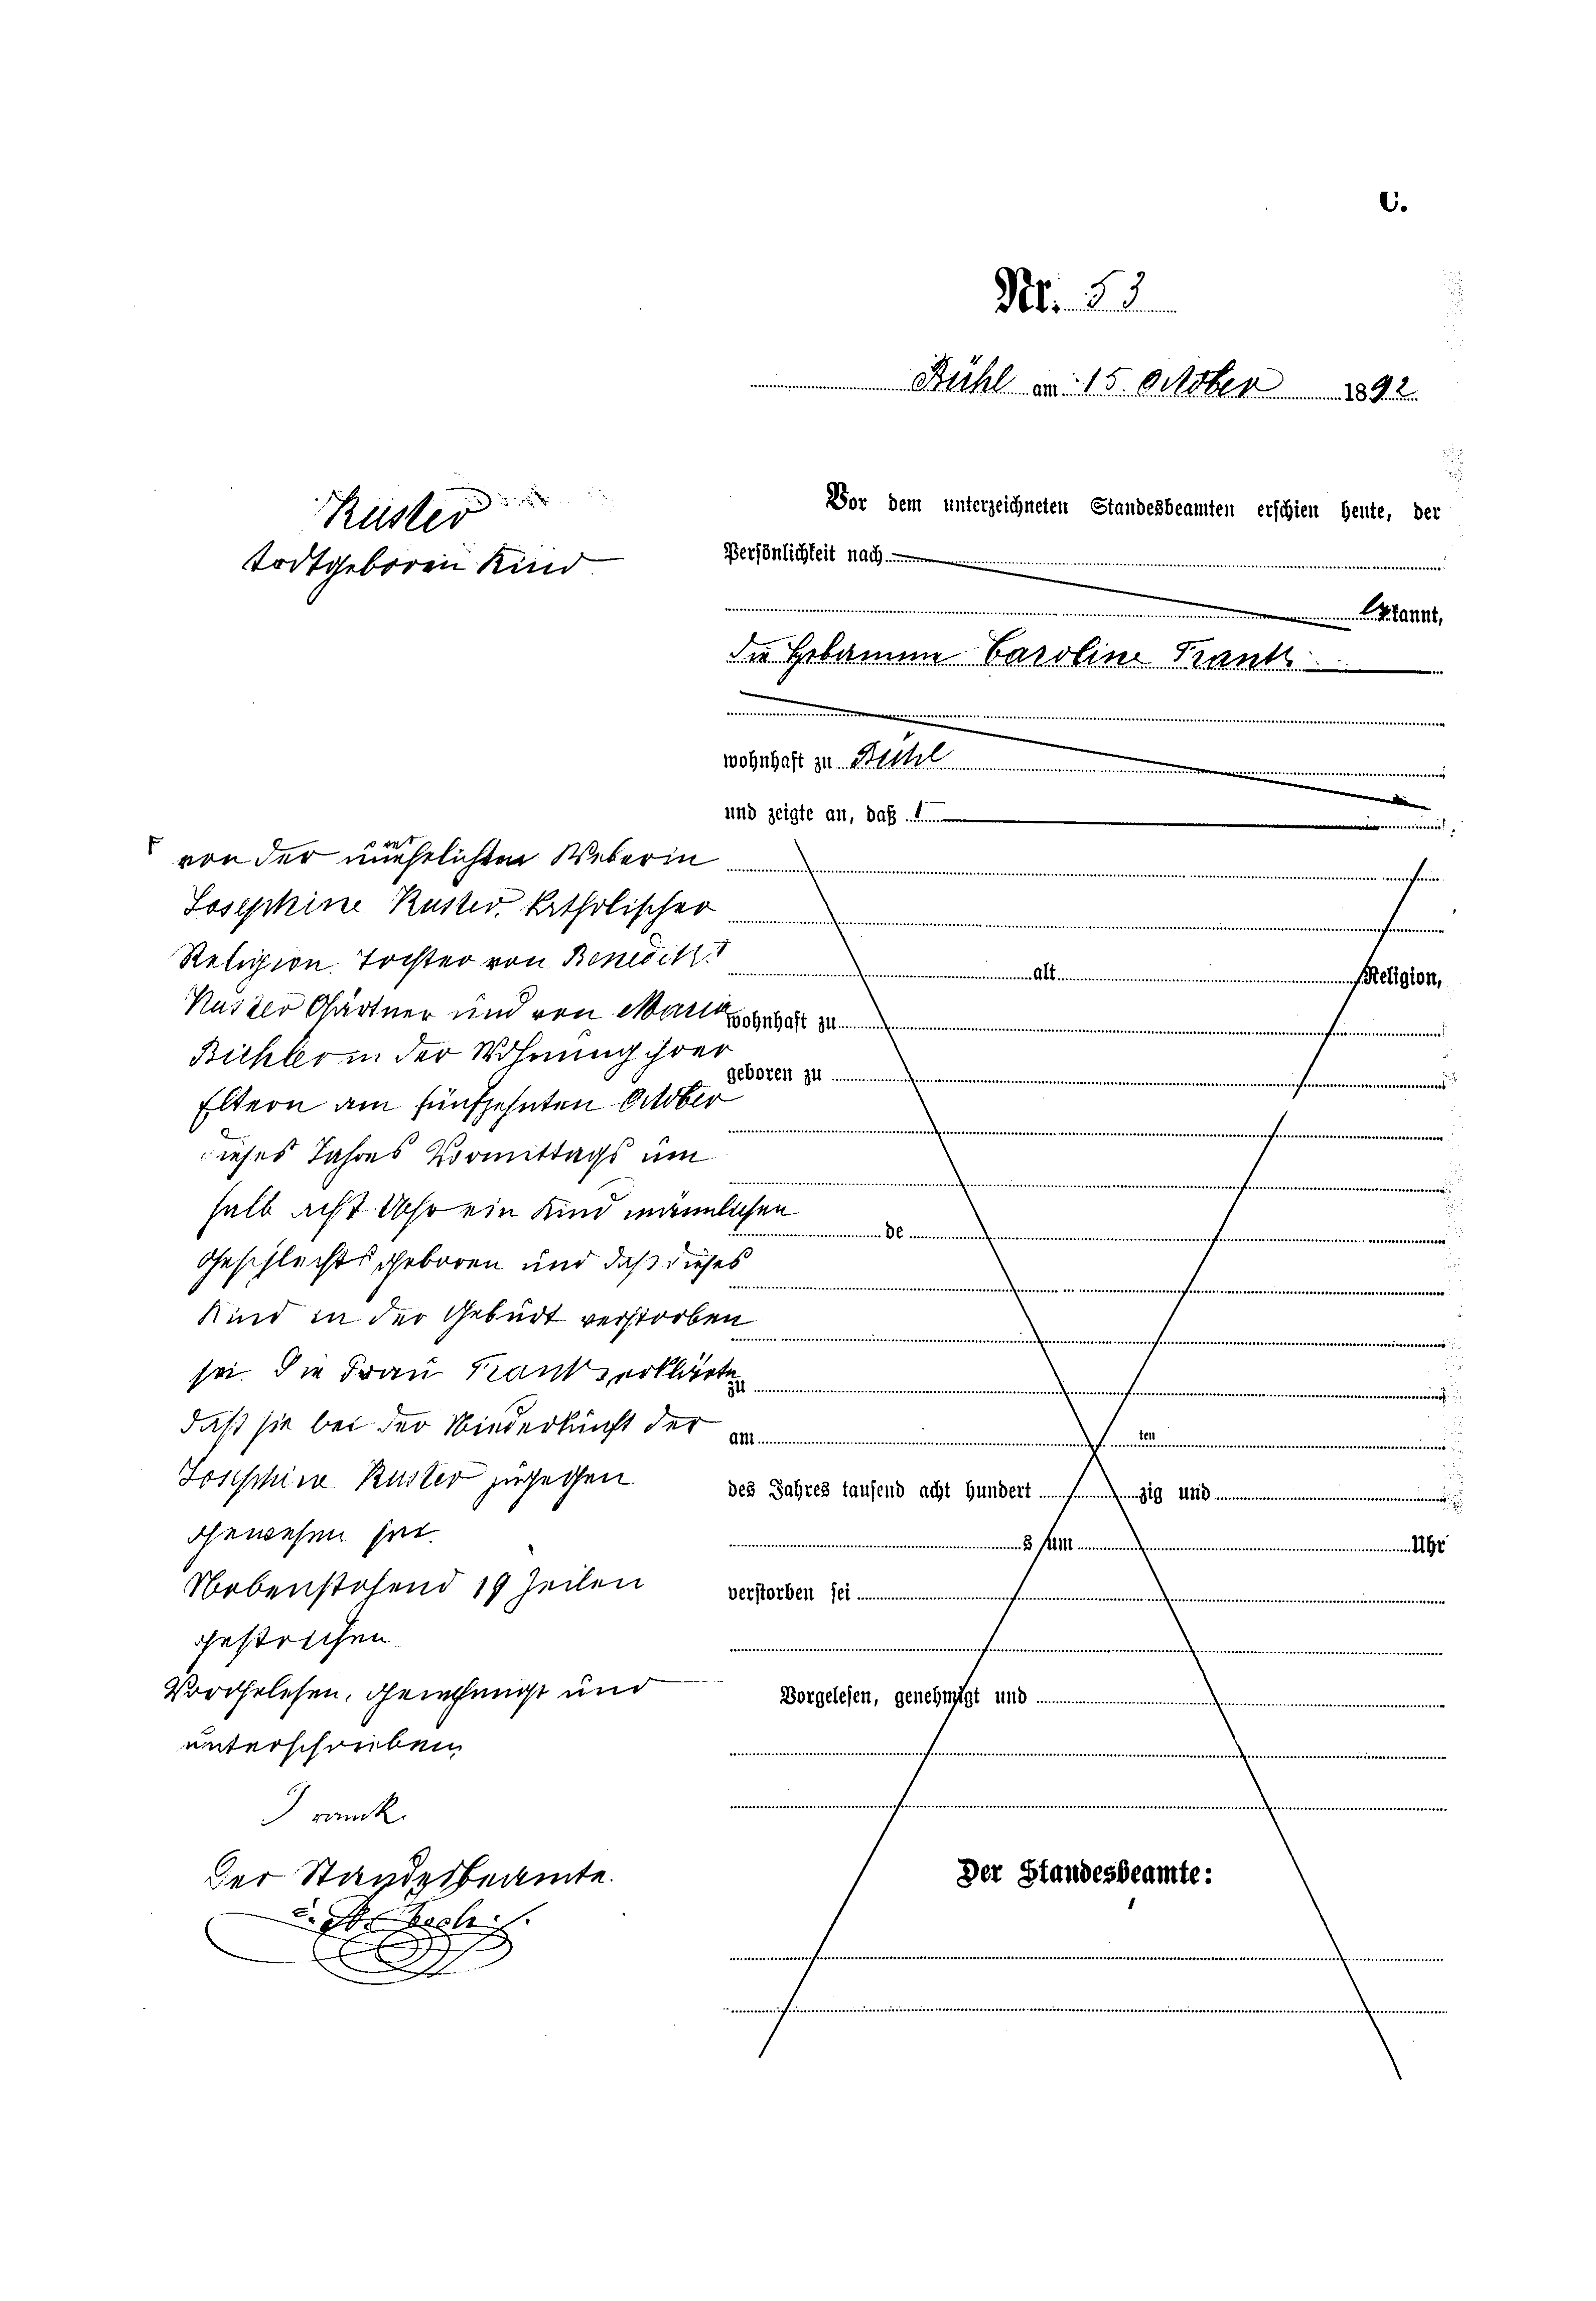 C.
Nr. 53
Bühl am 15. October 1892.
Ruster
todtgeboren Kind
Vor dem unterzeichneten Standesbeamten erschien heute, der
Persönlichkeit nach
kannt,
die Hebamme Caroline Frank
wohnhaft zu Bühl
und zeigte an, daß
von der unverehelichten Weberin
Josephine Ruster, katholischer
Religion, Tochter von Benedikt
Ruster Gärtner und von Maria
Bichler in der Wohnung ihrer
Eltern am fünfzehnten October
dieses Jahres Vormittags um
halb acht Uhr ein Kind männlichen
Geschlechts geboren und daß dieses
Kind in der Geburt verstorben
sei. Die Frau Frank erklärte
daß sie bei der Niederkunft der
Josephine Ruster zugegen
gewesen sei.
Nebenstehend 19 Zeilen
gestrichen
Vorgelesen, genehmigt und
unterschrieben
Franck.
Der Standesbeamte.
alt Religion,
wohnhaft zu
geboren zu
de
zu
am ten
des Jahres tausend acht hundert zig und
s um Uhr
verstorben sei
Vorgelesen, genehmigt und
Der Standesbeamte: